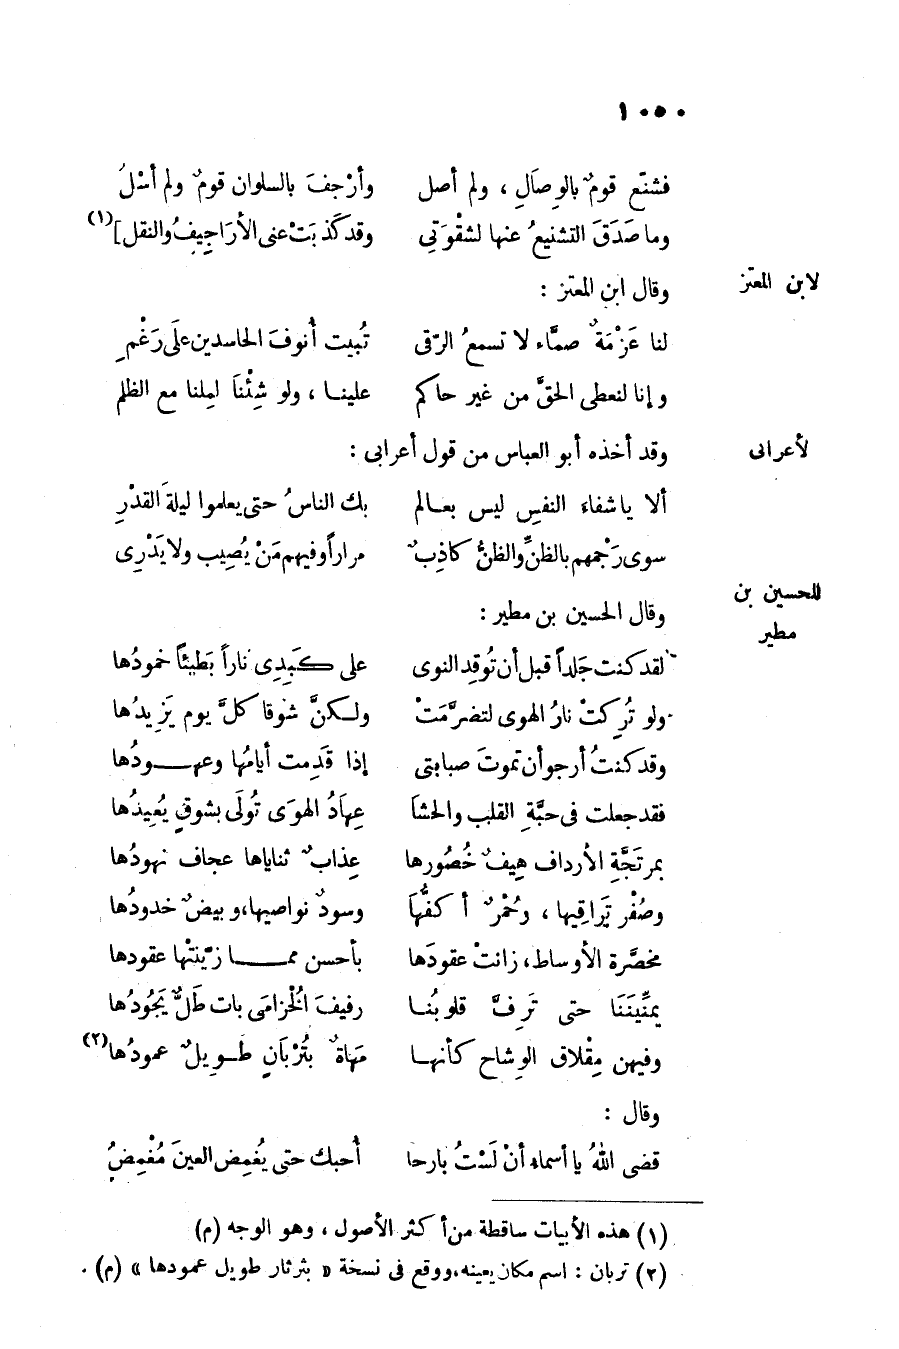 ١٠٥٠
فشنّع قومٌ بالوِصَالِ ، ولم أصل وأرْجفَ بالسلوان قومٌ ولم أسْلُ
وما صَدَقَ التشنيعُ عنها لشقْوَتِى وقد كَذبَتْ عنى الأرَاجِيفُ والنقل](١)
لابن المعتز
وقال ابن المعتز :
لنا عَزْمَةٌ صمَّاء لا تسمعُ الرّقى تُبيت أنوفَ الحاسدين علَى رَغْمِ
وإنا لنعطى الحقَّ من غير حاكم علينا ، ولو شِئْنَا لملنا مع الظلم
لأعرابى
وقد أخذه أبو العباس من قول أعرابى :
ألا يا شفاءَ النفسِ ليس بعالم بك الناسُ حتى يعلموا ليلةَ القدْرِ
سوى رَجْمهم بالظنِّ والظنُّ كاذِبٌ مراراً وفيهم مَنْ يُصِيب ولا يَدْرِى
للحسين بن
مطير
وقال الحسين بن مطير :
لقد كنت جَلداً قبل أن تُوقِد النوى على كَبِدِى ناراً بَطيئاً خمودُها
ولو تُرِكتْ نارُ الهوى لتضرَّمَتْ ولكنَّ شوقا كلَّ يوم يَزِيدُها
وقد كنتُ أرجو أن تموتَ صبابتى إذا قَدِمت أيامُها وعهودُها
فقد جعلت فى حبَّةِ القلب والحشَا عِهَادُ الهوَى تُولَى بشوقٍ يُعِيدُها
بمرتَجَّةِ الأرداف هِيفٌ خُصُورها عِذابٌ ثناياها عجاف نهودُها
وصُفْر تَرَاقِيها ، وحُمْرٌ أكفُّهَا وسودٌ نواصيها، وبيضٌ خدودُها
مخصَّرة الأوساط، زانتْ عقودَها بأحسن مما زيّنتْها عقودها
يمنِّينَنَا حتى تَرِفَّ قلوبُنا رفيفَ الخُزامَى بات طَلٌّ يَجُودُها
وفيهن مِقْلاق الوِشاح كأنها مَهَاةٌ بتُرْبَانٍ طويلٌ عمودُها(٢)
وقال :
قضى اللهُ يا أسماء أنْ لَسْتُ بارحا أحبك حتى يُغمِض العينَ مُغْمِضُ
(١) هذه الأبيات ساقطة من أكثر الأصول ، وهو الوجه (م)
(٢) تربان : اسم مكان بعينه، ووقع فى نسخة « بثرثار طويل عمودها » (م) .